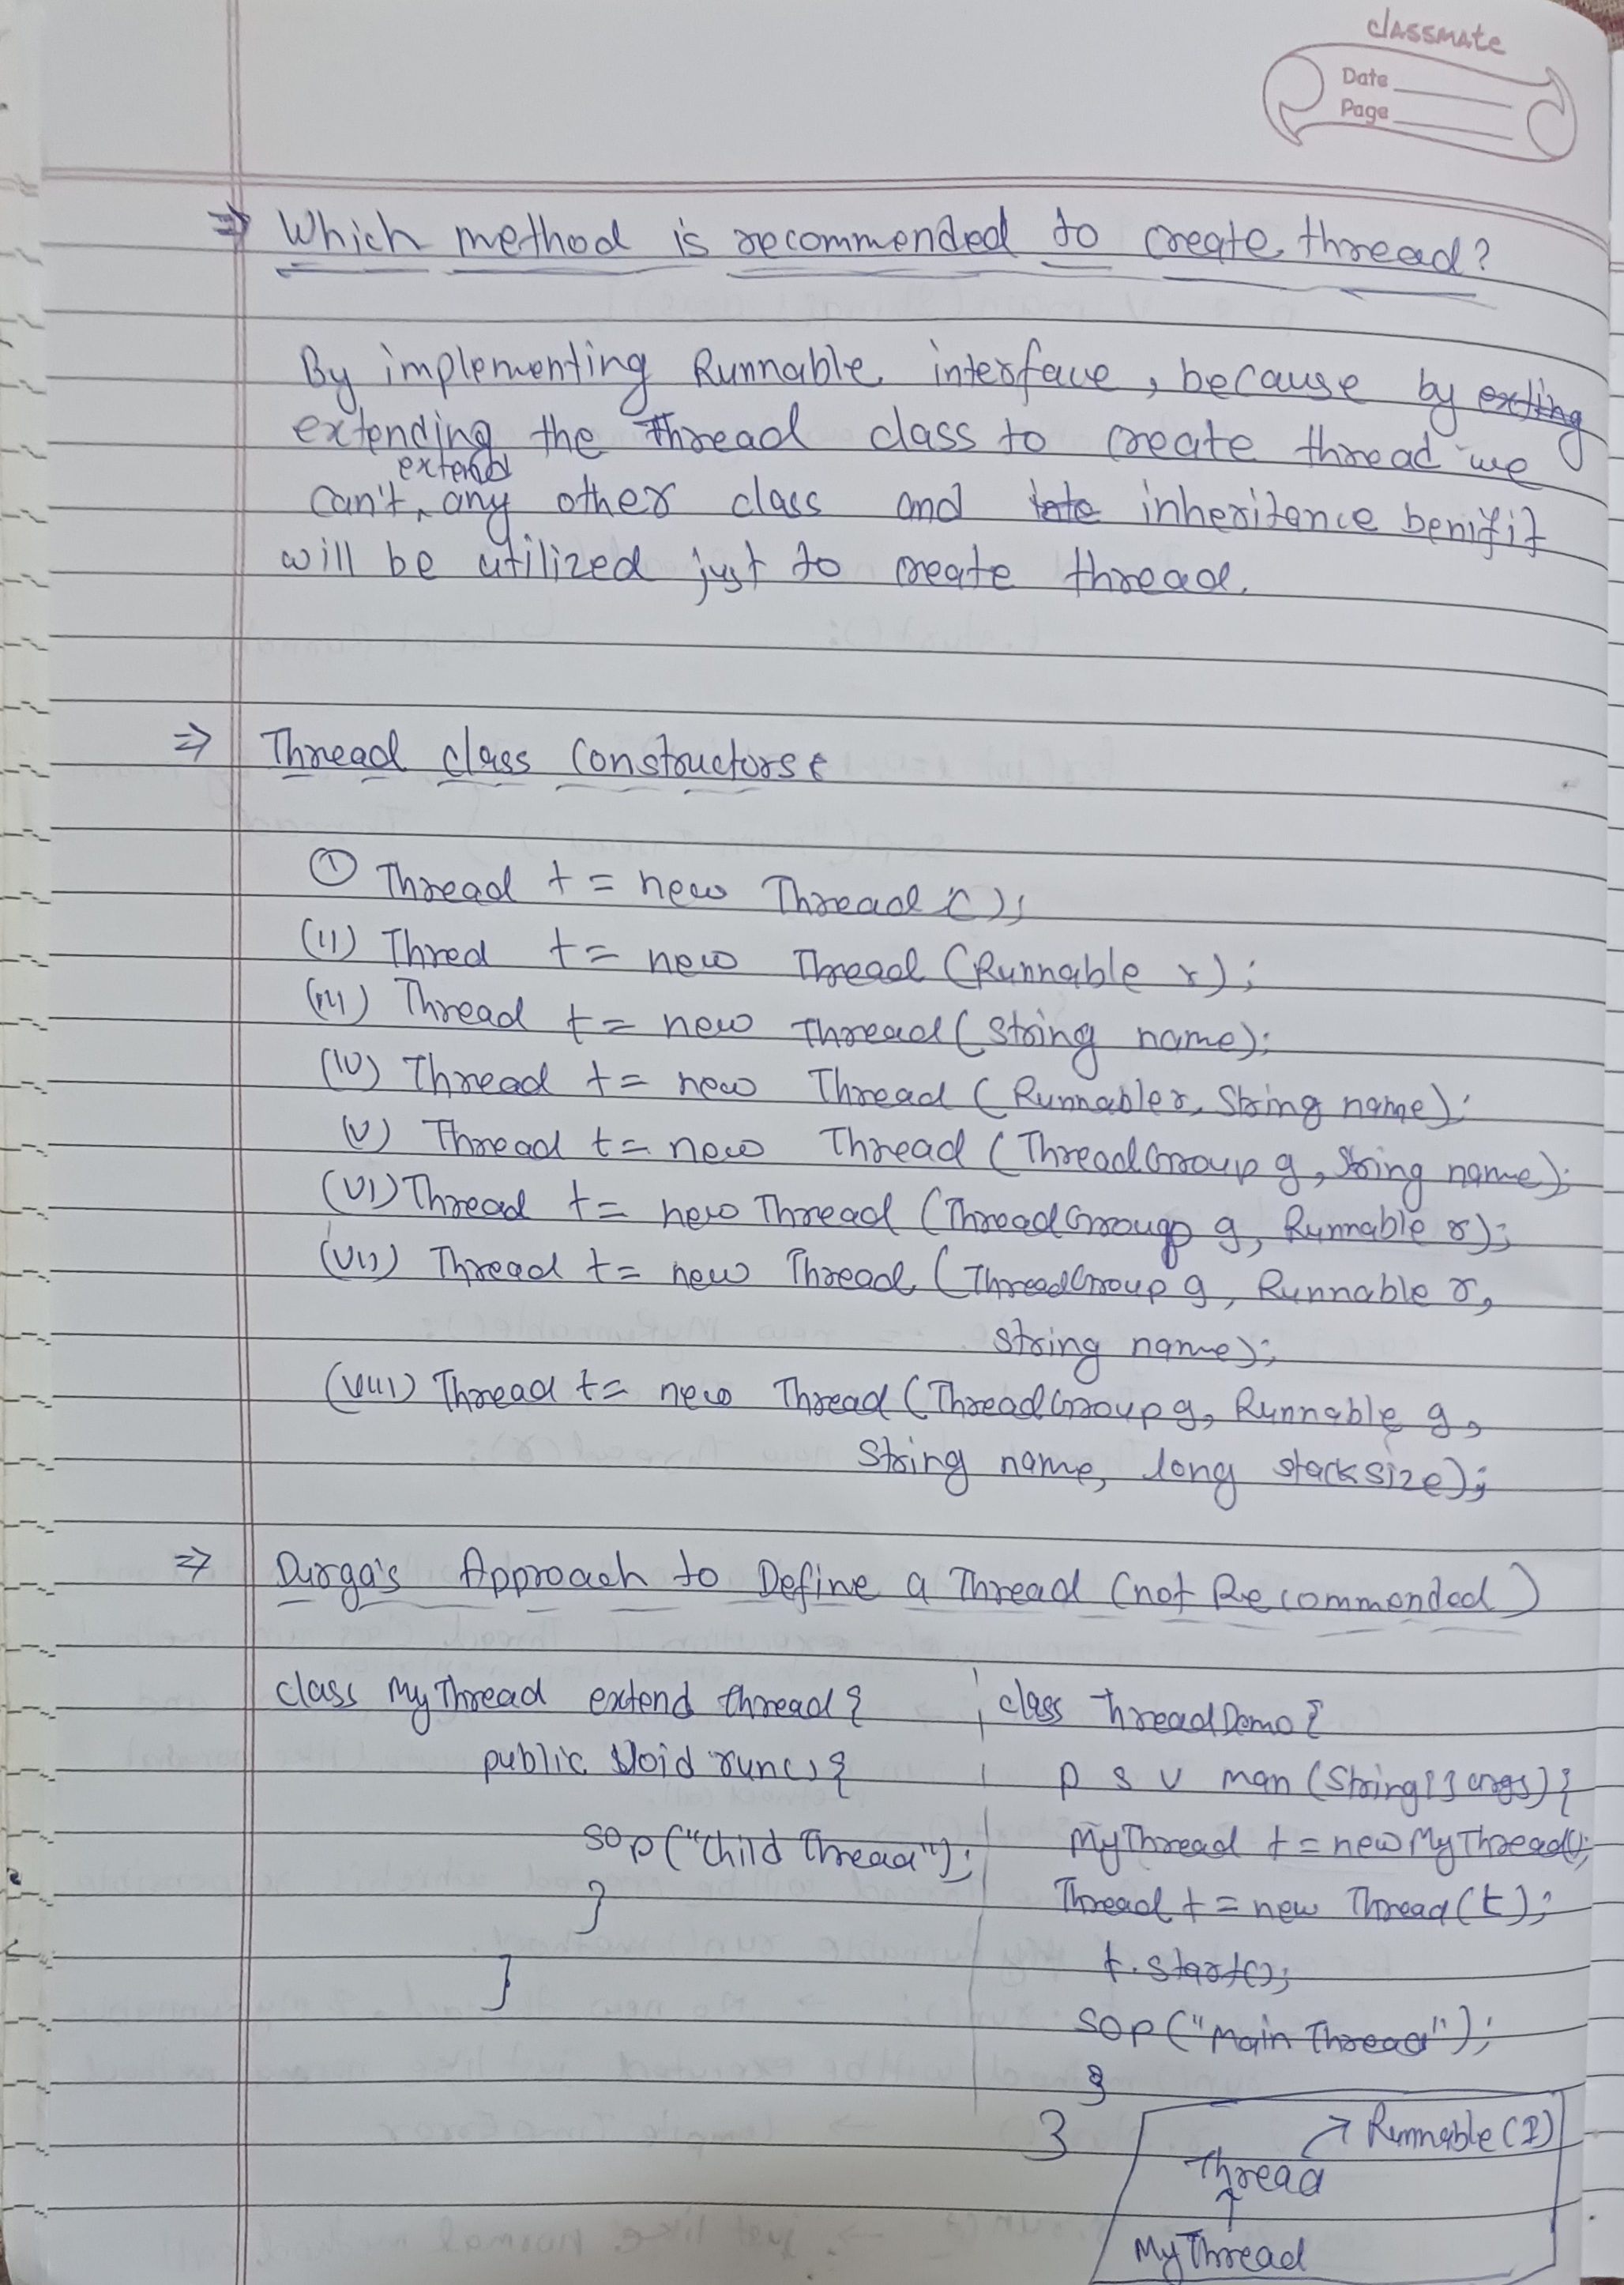 classmate
Date
Page
⇒ Which method is recommended to create thread?
By implementing Runnable interface, because by exting
extending the thread class to create thread we
extend
can't any other class and inheritance benifit
will be utilized just to create thread.
⇒ Thread class Constructors:
① Thread t = new Thread();
(ii) Thred t = new Thread (Runnable r);
(iii) Thread t = new Thread (String name);
(iv) Thread t = new Thread (Runnable r, String name);
(v) Thread t = new Thread (ThreadGroup g, String name);
(vi) Thread t = new Thread (ThreadGroup g, Runnable r);
(vii) Thread t = new Thread (ThreadGroup g, Runnable r,
String name);
(viii) Thread t = new Thread (ThreadGroup g, Runnable g,
String name, long stacksize);
⇒ Durga's Approach to Define a Thread (not Recommended)
class MyThread extend thread {
public void run() {
sop("Child Thread");
}
}
class ThreadDemo {
p s v man (String[] args) {
MyThread t = new MyThread();
Thread t = new Thread(t);
t.start();
sop("Main Thread");
}
}
→ Runnable (I)
Thread
↑
MyThread